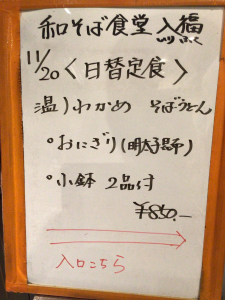 和そば食堂 入福
11/20〈日替定食〉
温)わかめ そばうどん
・おにぎり(明太子)
・小鉢 2品付
¥850.-
入口こちら